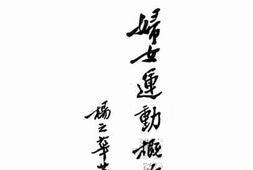 婦女運動概
楊之華